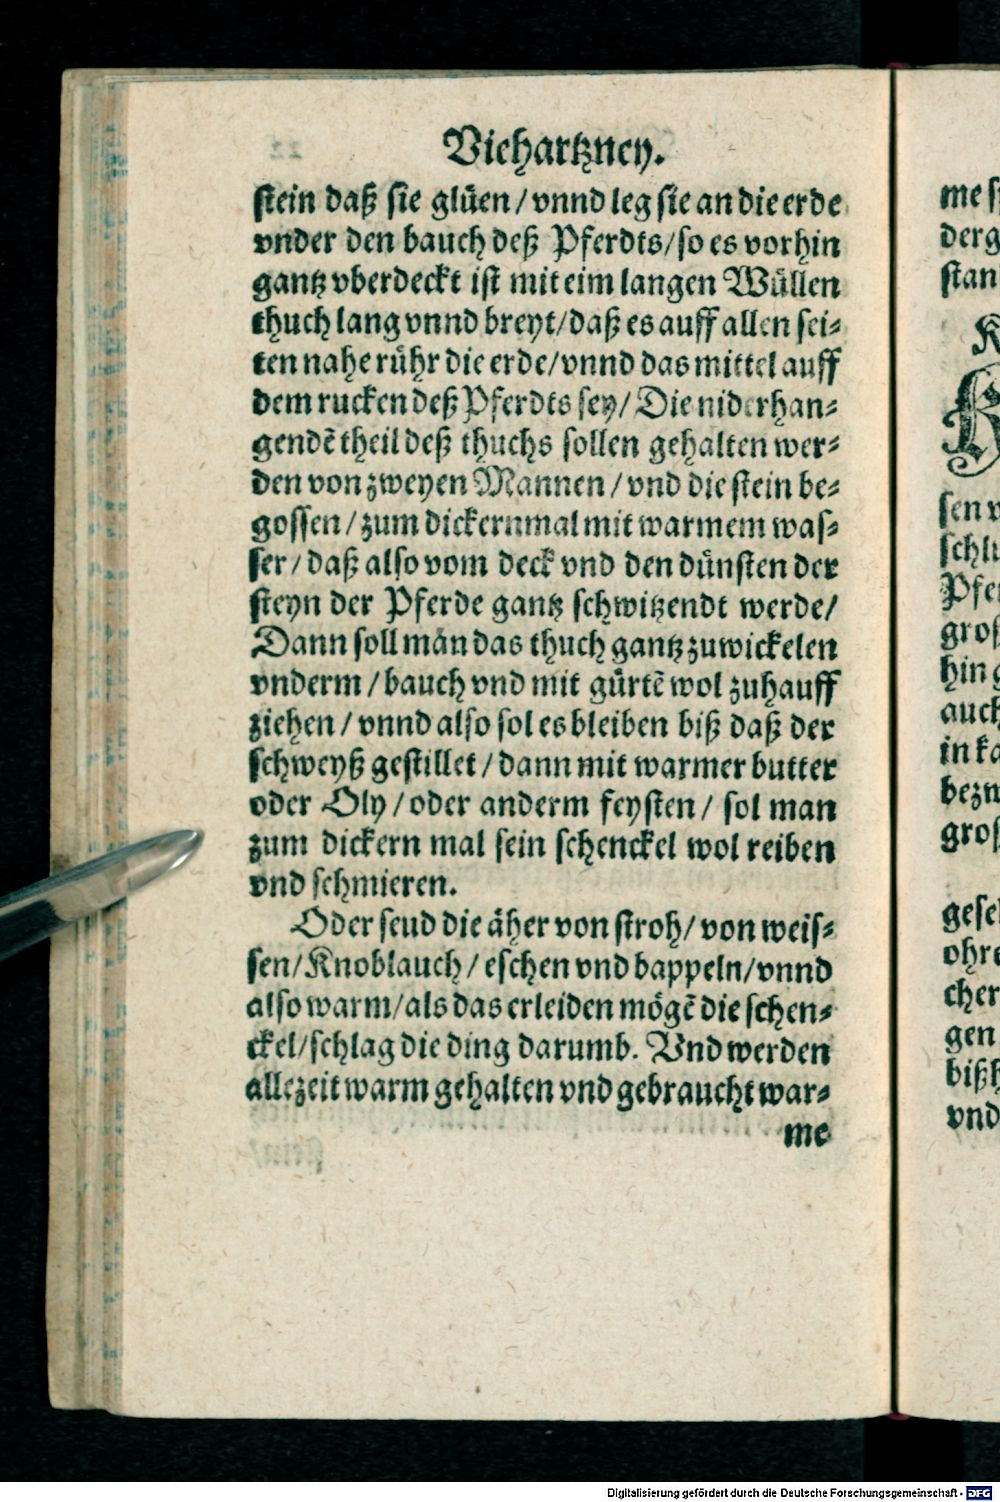 Viehartzney.
stein daß sie glüen / vnnd leg sie an die erde
vnder den bauch deß Pferdts / so es vorhin
gantz vberdeckt ist mit eim langen Wüllen
thuch lang vnnd breyt / daß es auff allen sei⸗
ten nahe rühr die erde / vnnd das mittel auff
dem rucken deß Pferdts sey / Die niderhan⸗
gendē theil deß thuchs sollen gehalten wer⸗
den von zweyen Mannen / vnd die stein be⸗
gossen / zum dickernmal mit warmem was⸗
ser / daß also vom deck vnd den dünsten der
steyn der Pferde gantz schwitzendt werde /
Dann soll man das thuch gantz zuwickelen
vnderm / bauch vnd mit gürtē wol zuhauff
ziehen / vnnd also sol es bleiben biß daß der
schweyß gestillet / dann mit warmer butter
oder Oly / oder anderm feysten / sol man
zum dickern mal sein schenckel wol reiben
vnd schmieren.
Oder seud die äher von stroh / von weis⸗
sen / Knoblauch / eschen vnd bappeln / vnnd
also warm / als das erleiden mögē die schen⸗
ckel / schlag die ding darumb. Vnd werden
allezeit warm gehalten vnd gebraucht war⸗
me
me s
derg
stan
K
sen v
schlu
Pfe
gros
hin g
auch
in ka
bezw
gros
gese
ohre
cher
gen
bißh
vnd
Digitalisierung gefördert durch die Deutsche Forschungsgemeinschaft - DFG